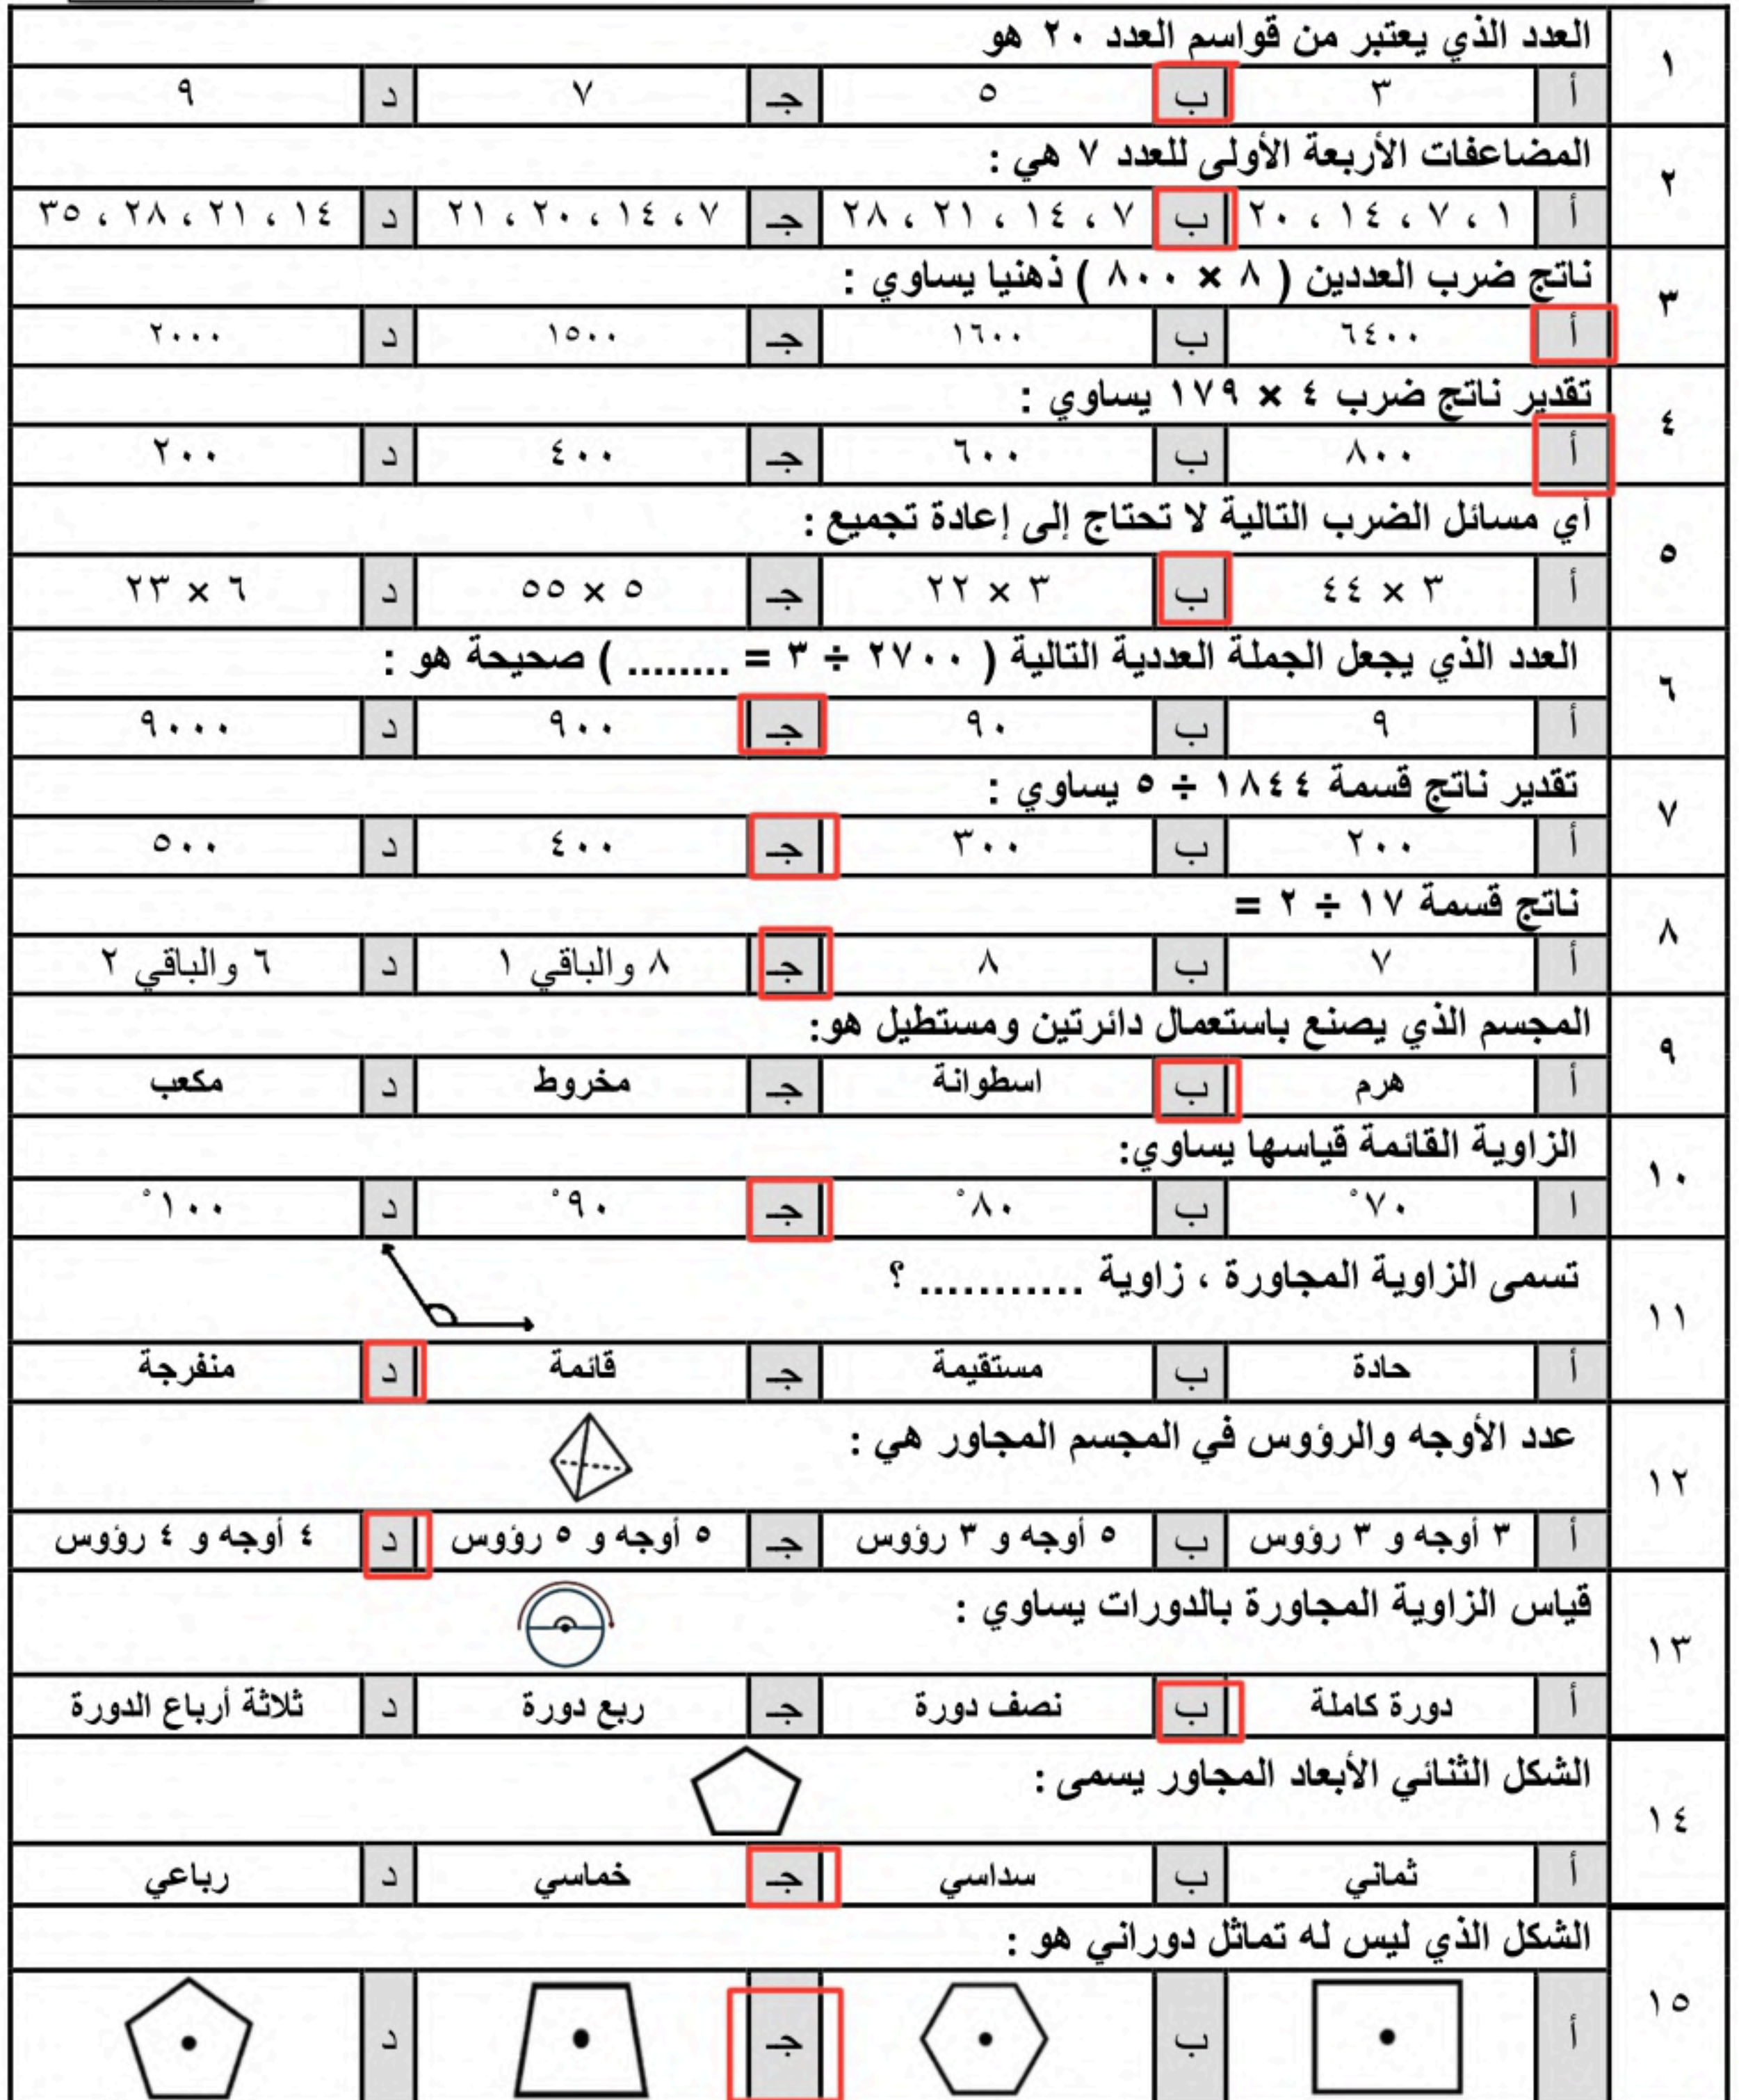 ١ العدد الذي يعتبر من قواسم العدد ٢٠ هو
أ ٣ ب ٥ جـ ٧ د ٩
٢ المضاعفات الأربعة الأولى للعدد ٧ هي :
أ ١ ، ٧ ، ١٤ ، ٢٠ ب ٧ ، ١٤ ، ٢١ ، ٢٨ جـ ٧ ، ١٤ ، ٢٠ ، ٢١ د ١٤ ، ٢١ ، ٢٨ ، ٣٥
٣ ناتج ضرب العددين ( ٨ × ٨٠٠ ) ذهنيا يساوي :
أ ٦٤٠٠ ب ١٦٠٠ جـ ١٥٠٠ د ٢٠٠٠
٤ تقدير ناتج ضرب ٤ × ١٧٩ يساوي :
أ ٨٠٠ ب ٦٠٠ جـ ٤٠٠ د ٢٠٠
٥ أي مسائل الضرب التالية لا تحتاج إلى إعادة تجميع :
أ ٣ × ٤٤ ب ٣ × ٢٢ جـ ٥ × ٥٥ د ٦ × ٢٣
٦ العدد الذي يجعل الجملة العددية التالية ( ٢٧٠٠ ÷ ٣ = ........ ) صحيحة هو :
أ ٩ ب ٩٠ جـ ٩٠٠ د ٩٠٠٠
٧ تقدير ناتج قسمة ١٨٤٤ ÷ ٥ يساوي :
أ ٢٠٠ ب ٣٠٠ جـ ٤٠٠ د ٥٠٠
٨ ناتج قسمة ١٧ ÷ ٢ =
أ ٧ ب ٨ جـ ٨ والباقي ١ د ٦ والباقي ٢
٩ المجسم الذي يصنع باستعمال دائرتين ومستطيل هو:
أ هرم ب اسطوانة جـ مخروط د مكعب
١٠ الزاوية القائمة قياسها يساوي:
ا ٧٠° ب ٨٠° جـ ٩٠° د ١٠٠°
١١ تسمى الزاوية المجاورة ، زاوية ........... ؟
أ حادة ب مستقيمة جـ قائمة د منفرجة
١٢ عدد الأوجه والرؤوس في المجسم المجاور هي :
أ ٣ أوجه و ٣ رؤوس ب ٥ أوجه و ٣ رؤوس جـ ٥ أوجه و ٥ رؤوس د ٤ أوجه و ٤ رؤوس
١٣ قياس الزاوية المجاورة بالدورات يساوي :
أ دورة كاملة ب نصف دورة جـ ربع دورة د ثلاثة أرباع الدورة
١٤ الشكل الثنائي الأبعاد المجاور يسمى :
أ ثماني ب سداسي جـ خماسي د رباعي
١٥ الشكل الذي ليس له تماثل دوراني هو :
أ ب جـ د